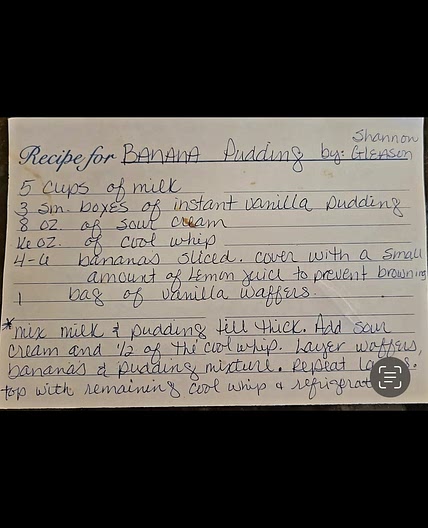 Shannon
Recipe for BANANA Pudding by: GLEASON
5 cups of milk
3 sm. boxes of instant vanilla pudding
8 oz of sour cream
16 oz. of cool whip
4-6 bananas sliced. cover with a small
amount of lemon juice to prevent browning
1 bag of vanilla waffers.
*mix milk & pudding till thick. Add sour
cream and 1/2 of the cool whip. Layer waffers,
bananas & pudding mixture. Repeat
top with remaining cool whip &